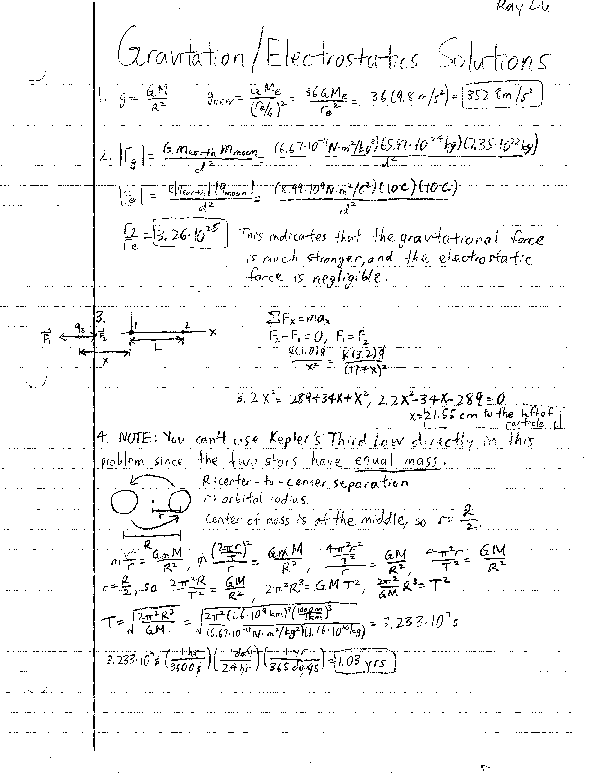 Ray
Gravitation/Electrostatics Solutions
1. g = GM/R² g_new = GM_E/(r_E/6)² = 36GM_E/r_E² = 36(9.8 m/s²) = 352.8 m/s²
2. |F_g| = G M_earth M_moon/d² = (6.67·10⁻¹¹ N·m²/kg²)(5.97·10²⁴ kg)(7.35·10²² kg)/d²
(8.99·10⁹ N·m²/C²)(10 C)(10 C)/d²
= 3.26·10²⁵ This indicates that the gravitational force
is much stronger, and the electrostatic
force is negligible.
3.
F₁ q₃ F₂ 1 2 x
x L
ΣFₓ = maₓ
F₂ - F₁ = 0, F₁ = F₂
k(1.0)q/x² = k(3.2)q/(17+x)²
3.2x² = 289+34x+x², 2.2x²-34x-289=0
x = 21.55 cm to the left of
particle 1
4. NOTE: You can't use Kepler's Third Law directly in this
problem since the two stars have equal mass.
R: center-to-center separation
r: orbital radius
Center of mass is at the middle, so r = R/2
r
R
m v²/r = GmM/R², m (2πr/T)²/r = GmM/R², 4π²r²/T²/r = GM/R², 4π²r/T² = GM/R²
r = R/2, so 2π²R/T² = GM/R², 2π²R³ = GMT², 2π²/GM R³ = T²
T = √(2π²R³/GM) = 3.233·10⁷ s
3.233·10⁷ s (1 hr/3600 s)(1 day/24 hr)(1 yr/365 days) = 1.03 yrs